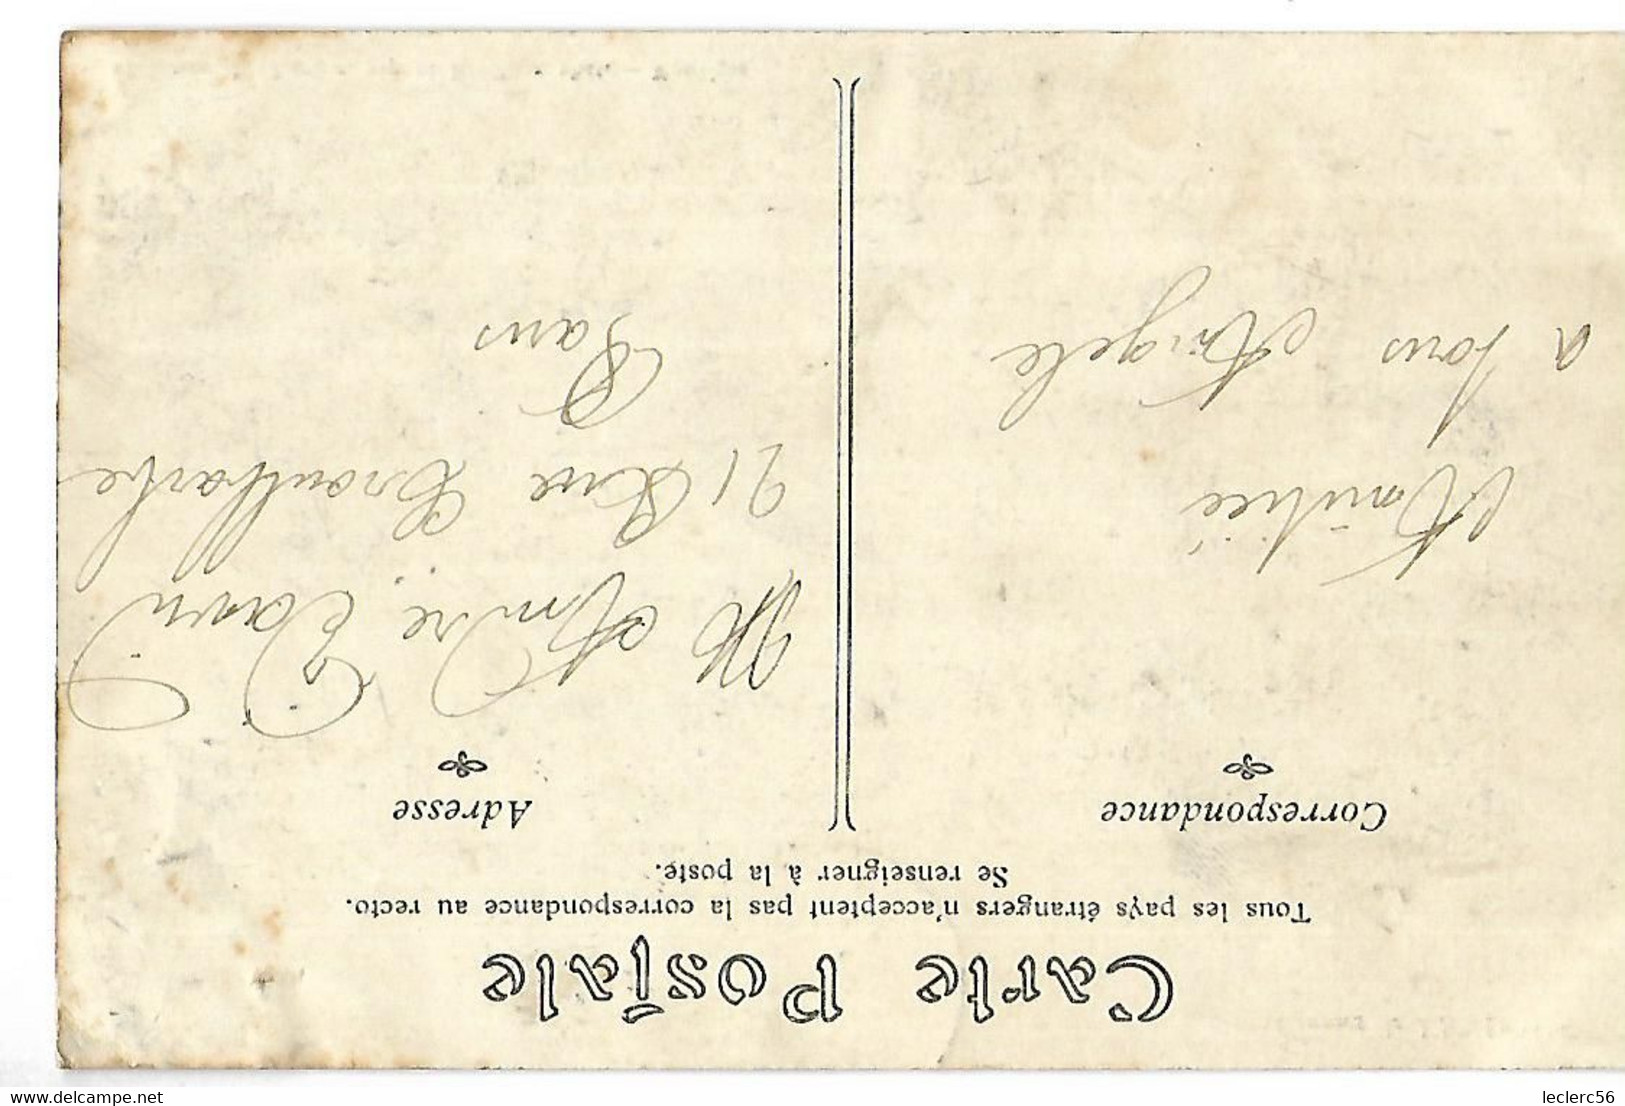 Carte Postale
Tous les pays étrangers n'acceptent pas la correspondance au recto.
Se renseigner à la poste.
Correspondance
Amitié
a tous Angele
Adresse
M André
21 Rue Croulbarbe
Paris
leclerc56